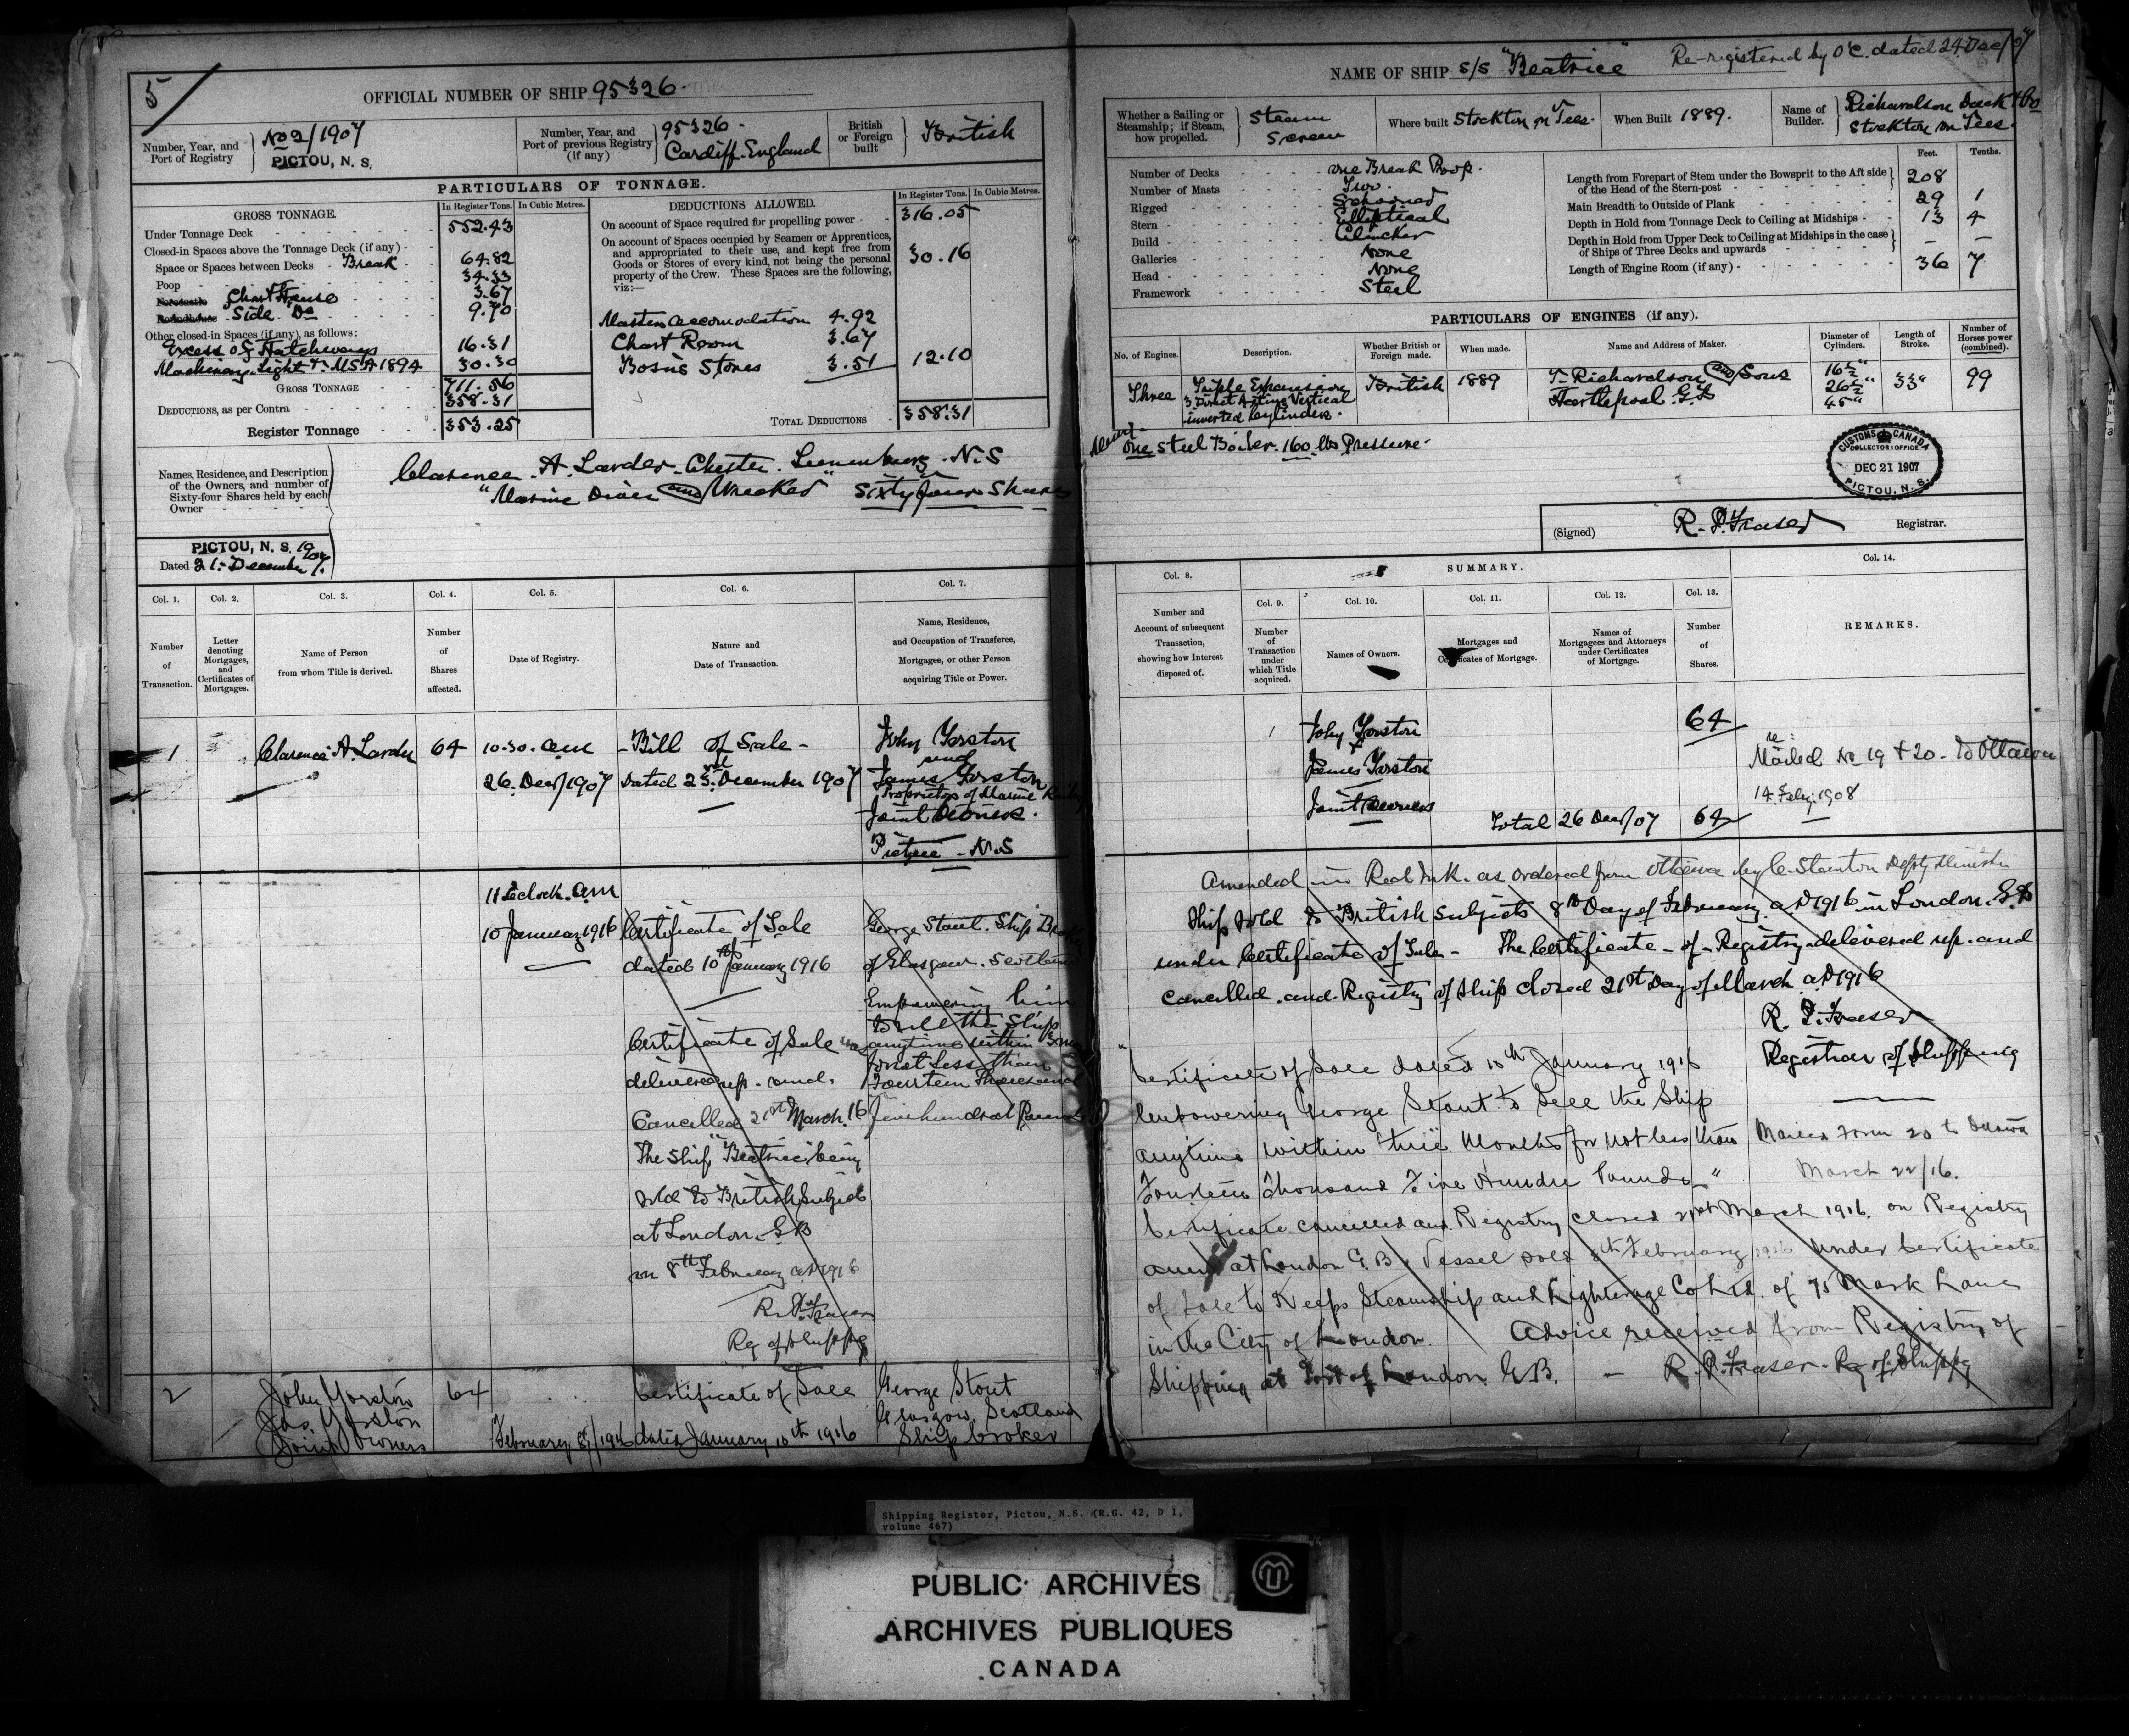 5/
OFFICIAL NUMBER OF SHIP 95326.
Number, Year, and Port of Registry
No 2/1907
PICTOU, N. S.
Number, Year, and Port of previous Registry (if any)
95326 -
Cardiff. England
British or Foreign built
British
PARTICULARS OF TONNAGE.
GROSS TONNAGE.
In Register Tons. In Cubic Metres.
Under Tonnage Deck 552.43
Closed-in Spaces above the Tonnage Deck (if any) -
Space or Spaces between Decks - Break 64.82
Poop 34.33
Forecastle Chart House 3.67
Roundhouse Side Do 9.70
Other closed-in Spaces (if any), as follows:
Excess of Hatchways 16.31
Machinery. Light &c. MSA 1894 30.30
GROSS TONNAGE 711.56
DEDUCTIONS, as per Contra 358.31
Register Tonnage 353.25
DEDUCTIONS ALLOWED.
In Register Tons. In Cubic Metres.
On account of Space required for propelling power - 316.05
On account of Spaces occupied by Seamen or Apprentices,
and appropriated to their use, and kept free from
Goods or Stores of every kind, not being the personal
property of the Crew. These Spaces are the following,
viz:—
30.16
Masters accomodation 4.92
Chart Room 3.67
Bosuns Stores 3.51 12.10
TOTAL DEDUCTIONS 358.31
Names, Residence, and Description
of the Owners, and number of
Sixty-four Shares held by each
Owner
Clarence. A. Larder. Chester. Lunenburg. N.S
"Marine Diver and Wrecker" Sixty four Shares
PICTOU, N. S. 1907
Dated 21. December
NAME OF SHIP S/S "Beatrice"
Re-registered by O'C. dated 24 Dec/07
Whether a Sailing or Steamship; if Steam, how propelled.
Steam
Screw
Where built Stockton on Tees.
When Built 1889.
Name of Builder.
Richardson Duck & Co
Stockton on Tees.
Number of Decks one Break Poop.
Number of Masts Two.
Rigged Schooner
Stern Elliptical
Build Clincker
Galleries None
Head None
Framework Steel
Feet. Tenths.
Length from Forepart of Stem under the Bowsprit to the Aft side
of the Head of the Stern-post 208
Main Breadth to Outside of Plank 29 1
Depth in Hold from Tonnage Deck to Ceiling at Midships 13 4
Depth in Hold from Upper Deck to Ceiling at Midships in the case
of Ships of Three Decks and upwards — —
Length of Engine Room (if any) 36 7
PARTICULARS OF ENGINES (if any).
No. of Engines. Description. Whether British or Foreign made. When made. Name and Address of Maker. Diameter of Cylinders. Length of Stroke. Number of Horses power (combined).
Three
Triple Expansion
3 Direct Acting Vertical
inverted Cylinders.
British
1889
T. Richardson and Sons
Hartlepool. G.B
16½"
26½"
45"
33"
99
One Steel Boiler. 160. lbs Pressure.
CUSTOMS CANADA
COLLECTOR'S OFFICE
DEC 21 1907
PICTOU, N. S.
(Signed) R. P. Fraser Registrar.
Col. 1. Col. 2. Col. 3. Col. 4. Col. 5. Col. 6. Col. 7.
Number of Transaction.
Letter denoting Mortgages, and Certificates of Mortgages.
Name of Person from whom Title is derived.
Number of Shares affected.
Date of Registry.
Nature and Date of Transaction.
Name, Residence, and Occupation of Transferee, Mortgagee, or other Person acquiring Title or Power.
Col. 8.
SUMMARY.
Col. 9. Col. 10. Col. 11. Col. 12. Col. 13.
Col. 14.
Number and Account of subsequent Transaction, showing how Interest disposed of.
Number of Transaction under which Title acquired.
Names of Owners.
Mortgages and Certificates of Mortgage.
Names of Mortgagees and Attorneys under Certificates of Mortgage.
Number of Shares.
REMARKS.
1
Clarence A. Larder
64
10.30. am
26. Dec/1907
- Bill of Sale -
Dated 23rd December 1907
John Yorston
and
James Yorston
Proprietors of Marine Railway
Joint Owners.
Pictou - N.S
1
John Yorston
&
James Yorston
Joint Owners
64
Total 26 Dec/07 64
Mailed No 19 & 20 - to Ottawa
14. Feby. 1908
11 oclock. am
10 January 1916
Certificate of Sale
dated 10th January 1916
Certificate of Sale was
delivered up. and.
Cancelled 21st March. 16
The Ship "Beatrice" being
sold to British Subjects
at London. G.B
on 8th February AD 1916
R. P. Fraser
Reg of Shippg
George Stout. Ship Broker
of Glasgow. Scotland
Empowering him
to sell the Ship
anytime within 3 mos
for not Less than
Fourteen Thousand
five hundred Pounds
Amended in Red Ink. as ordered from Ottawa by C. Stanton Depty Minister
Ship sold to British subjects 8th Day of February AD 1916 in London. G.B
under Certificate of Sale - The Certificate - of - Registry delivered up. and
cancelled. and. Registry of Ship closed 21st Day of March AD 1916
R. P. Fraser
Registrar of Shipping
"Certificate of Sale dated 10th January 1916
Empowering George Stout to Sell the Ship
anytime within three Months for not less than
Fourteen Thousand Five Hundred Pounds"
Certificate cancelled and Registry closed 21st March 1916. on Registry
anew at London G.B. Vessel sold 8th February 1916 under Certificate
of Sale to Keeps Steamship and Lighterage Co Ltd. of 75 Mark Lane
in the City of London. Advice received from Registry of
Shipping at Port of London G.B. - R. P. Fraser. Rg of Shippg
Mailed Form 20 to Ottawa
March 22/16.
2
John Yorston
Jas. Yorston
Joint Owners
64
February 8/1916
Certificate of Sale
dated January 10th 1916
George Stout
Glasgow, Scotland
Ship broker
Shipping Register, Pictou, N.S. (R.G. 42, D 1,
volume 467)
PUBLIC ARCHIVES
ARCHIVES PUBLIQUES
CANADA